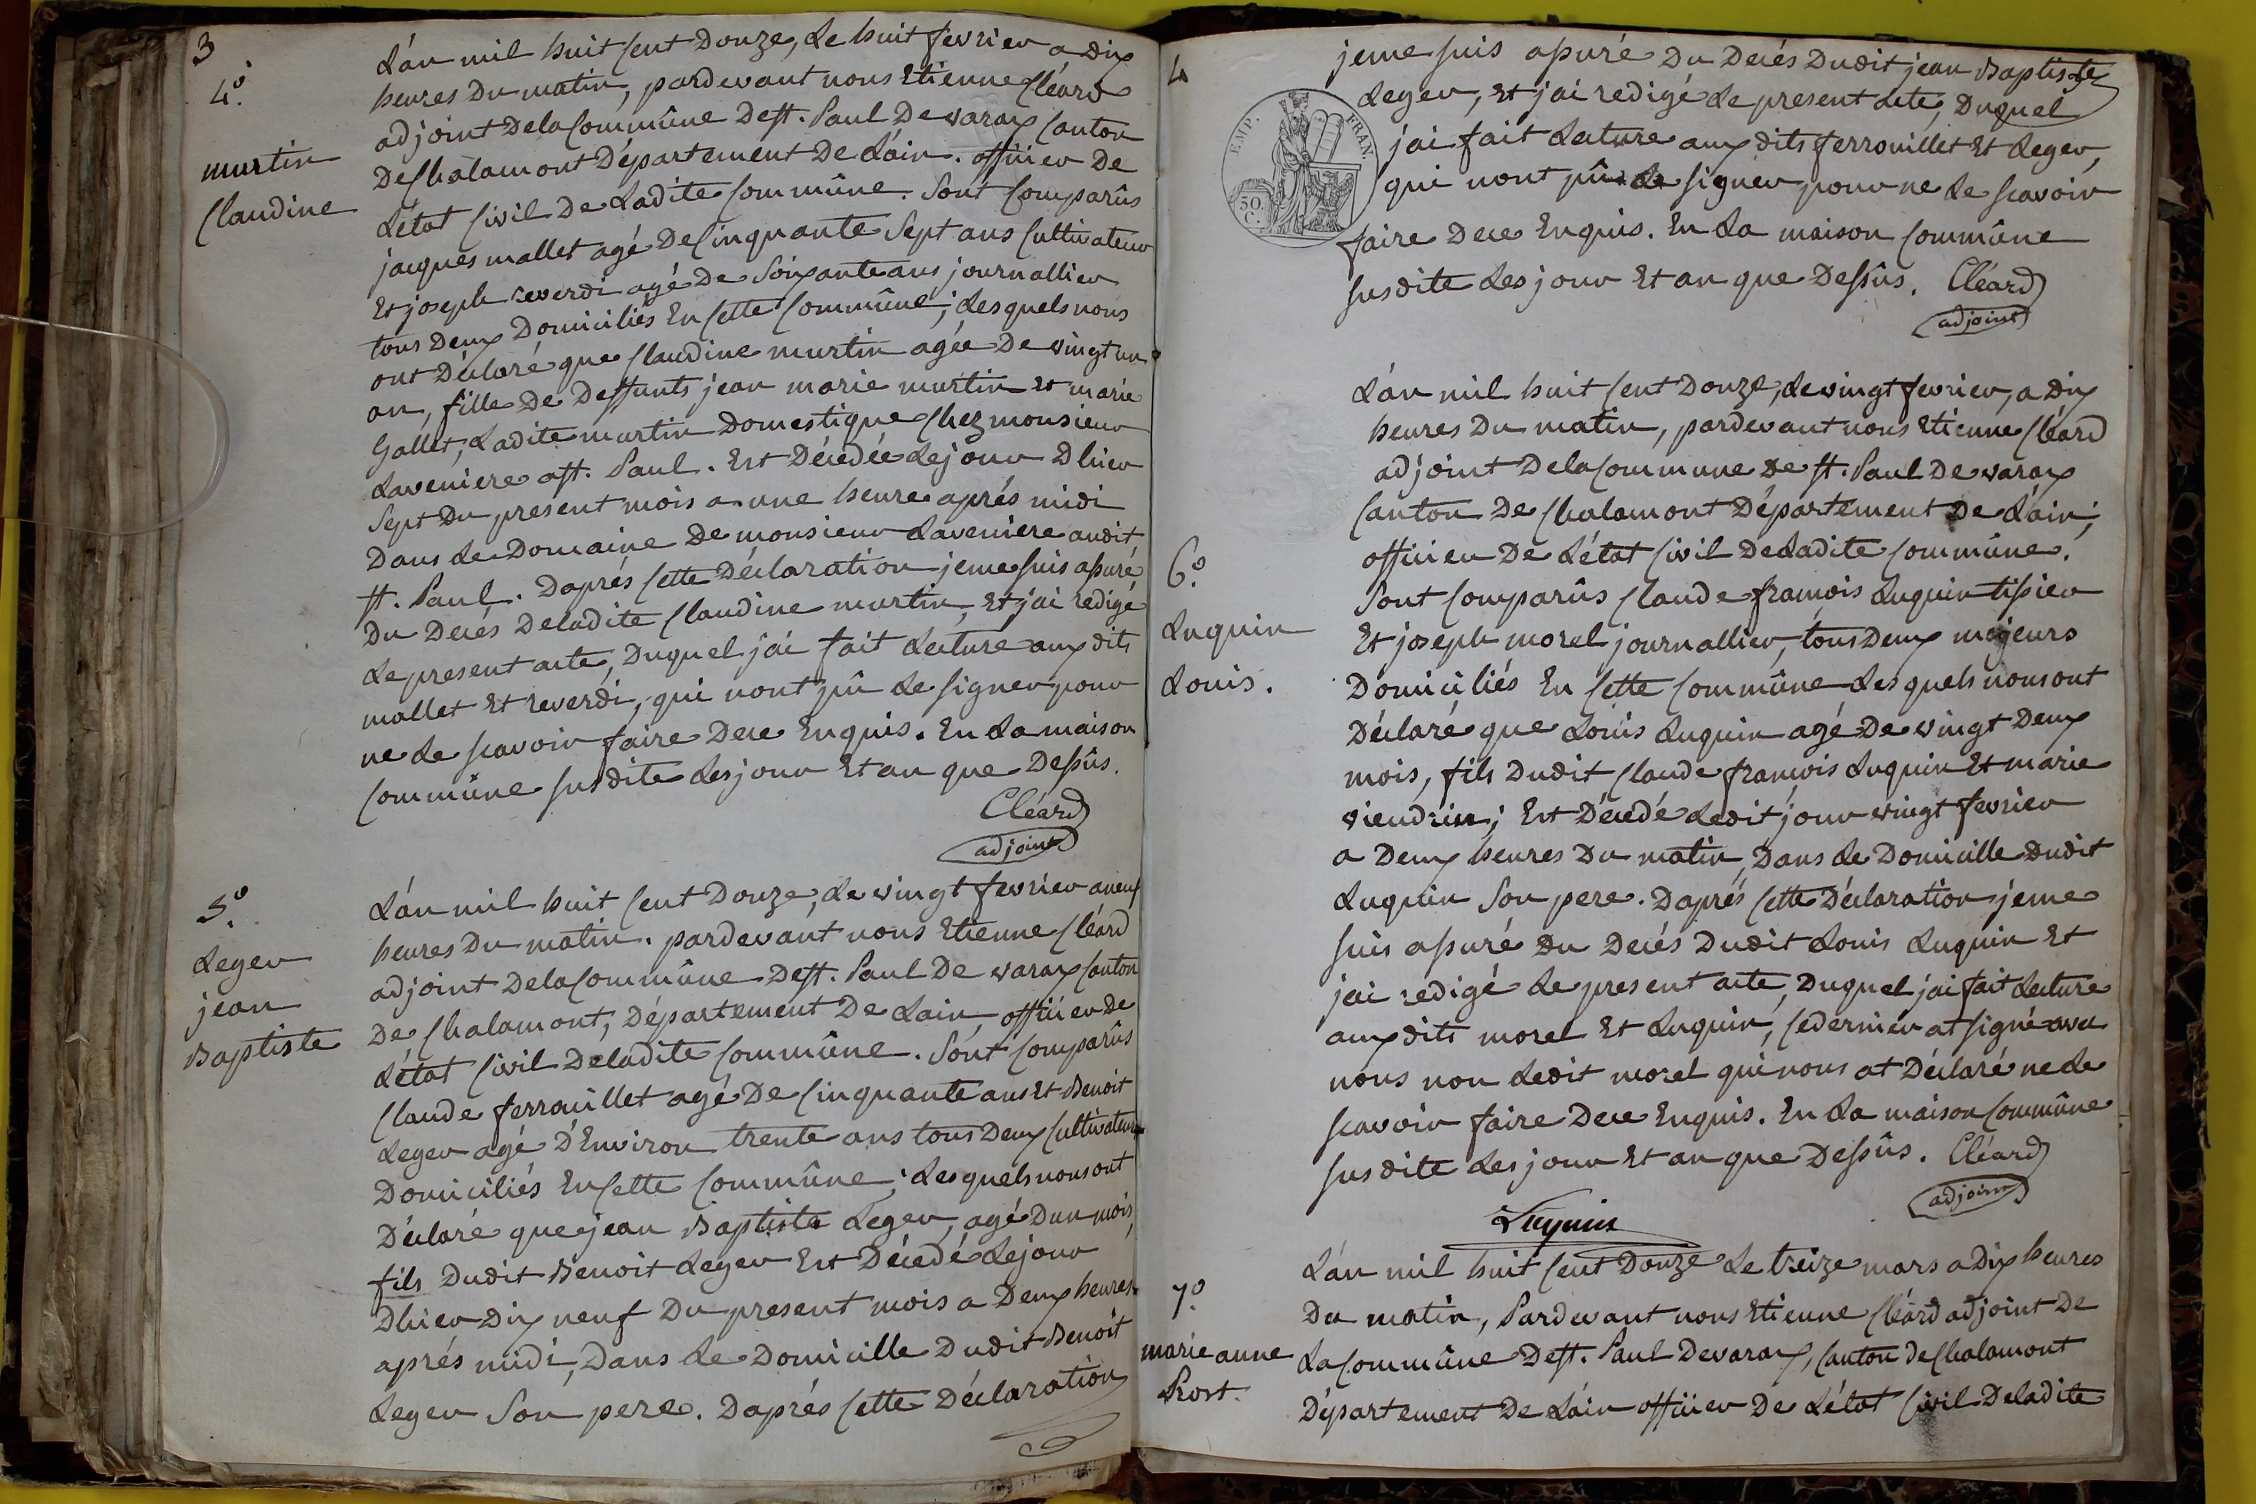 3
4.°
murtin
Claudine
L'an mil huit Cent Douze, Le huit fevrier a dix
heures Du matin, pardevant nous Etienne Cléard
adjoint DelaCommûne De St. Paul De varax Canton
De Chalamont Département De L'ain. officier De
L'état Civil De Ladite Commûne. Sont Comparûs
jacques mallet agé De Cinquante Sept ans Cultivateur
Et joseph reverdi agé De Soixante ans journallier
tous Deux Domiciliés En Cette Commûne; Lesquels nous
ont Déclaré que Claudine murtin agée De vingt un
an, fille De Deffunts jean marie murtin Et marie
Gallet, Ladite murtin Domestique Chez monsieur
Laveniere a St. Paul. Est Décedée Lejour Dhier
Sept Du present mois a une heure aprés midi
Dans Le Domaine De monsieur Laveniere audit
St. Paul. Daprés Cette Déclaration jeme suis assuré
Du Decés Deladite Claudine murtin, Et jai redigé
Le present acte, Duquel jai fait Lecture aux dits
mallet Et reverdi, qui nont pû Le signer pour
ne Le scavoir faire Dece Enquis. En La maison
Commûne susdite Les jour Et an que Dessûs.
Cléard
adjoint
5.°
Leger
jean
Baptiste
L'an mil huit Cent Douze, Le vingt fevrier a neuf
heures Du matin. pardevant nous Etienne Cléard
adjoint DelaCommûne De St. Paul De varax Canton
De Chalamont, Département De Lain officier De
L'état Civil Deladite Commûne. Sont Comparûs
Claude ferrouillet agé De Cinquante ans Et Benoit
Leger agé D'Environ trente ans tous Deux Cultivateurs
Domiciliés En Cette Commûne; Lesquels nous ont
Déclaré que jean Baptiste Leger, agé Dun mois,
fils Dudit Benoit Leger Est Décedé Lejour
Dhier Dix neuf Du present mois a Deux heures
aprés midi, Dans Le Domicille Dudit Benoit
Leger Son pere. Daprés Cette Déclaration
4
jeme suis assuré Du Decés Dudit jean Baptiste
Leger, Et jai redigé Le present acte, Duquel
EMP. FRAN.
50. C.
jai fait Lecture aux dits ferrouillet Et Leger,
qui nont pû Le signer pour ne Le scavoir
faire Dece Enquis. En La maison Commûne
susdite Les jour Et an que Dessûs. Cléard
adjoint
6.°
Luquin
Louis.
L'an mil huit Cent Douze, Le vingt fevrier, a dix
heures Du matin, pardevant nous Etienne Cléard
adjoint DelaCommune De St. Paul De varax
Canton De Chalamont Département De L'ain;
officier De L'état Civil DeLadite Commûne.
Sont Comparûs Claude françois Luquin tissier
Et joseph morel journallier, tous Deux majeurs
Domiciliés En Cette Commûne Lesquels nous ont
Déclaré que Louis Luquin agé De vingt Deux
mois, fils Dudit Claude françois Luquin Et marie
viendrin; Est Décedé Ledit jour vingt fevrier
a Deux heures Du matin, Dans Le Domicille Dudit
Luquin Son pere. Daprés Cette Déclaration jeme
suis assuré Du Decés Dudit Louis Luquin Et
jai redigé Le present acte, Duquel jai fait Lecture
aux dits morel Et Luquin, Cedernier at signé avec
nous non Ledit morel qui nous at Déclaré ne Le
scavoir faire Dece Enquis. En La maison Commûne
susdite Les jour Et an que Dessûs. Cléard
adjoint
Luquin
7.°
marie anne
Prost.
L'an mil huit Cent Douze Le treize mars a Dix heures
Du matin, Pardevant nous Etienne Cléard adjoint De
La Commûne De St. Paul Devarax, Canton de Chalamont
Département De L'ain officier De L'état Civil Deladite